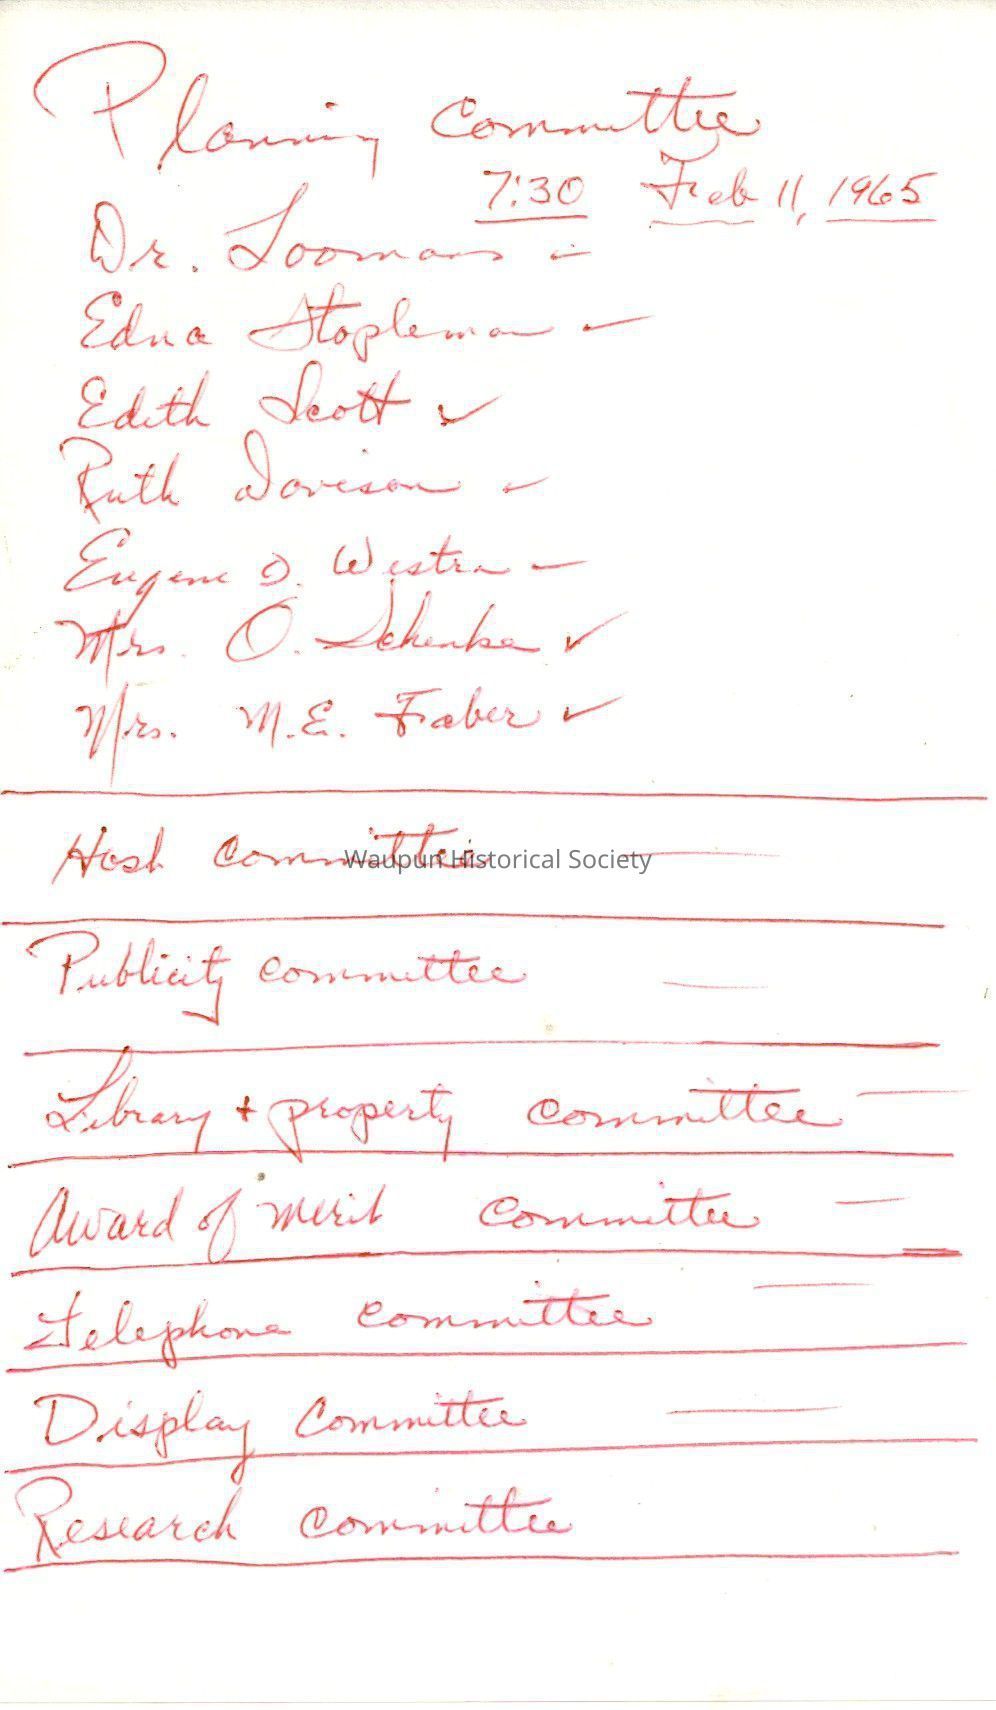 Planning Committee
7:30 Feb 11, 1965
Dr. Loomans -
Edna Stopleman -
Edith Scott ✓
Ruth Davison -
Eugene D. Westra -
Mrs. O. Schenke ✓
Mrs. M.E. Faber ✓
Host Committee
Waupun Historical Society
Publicity committee
Library + property committee
Award of merit committee
Telephone committee
Display Committee
Research committee